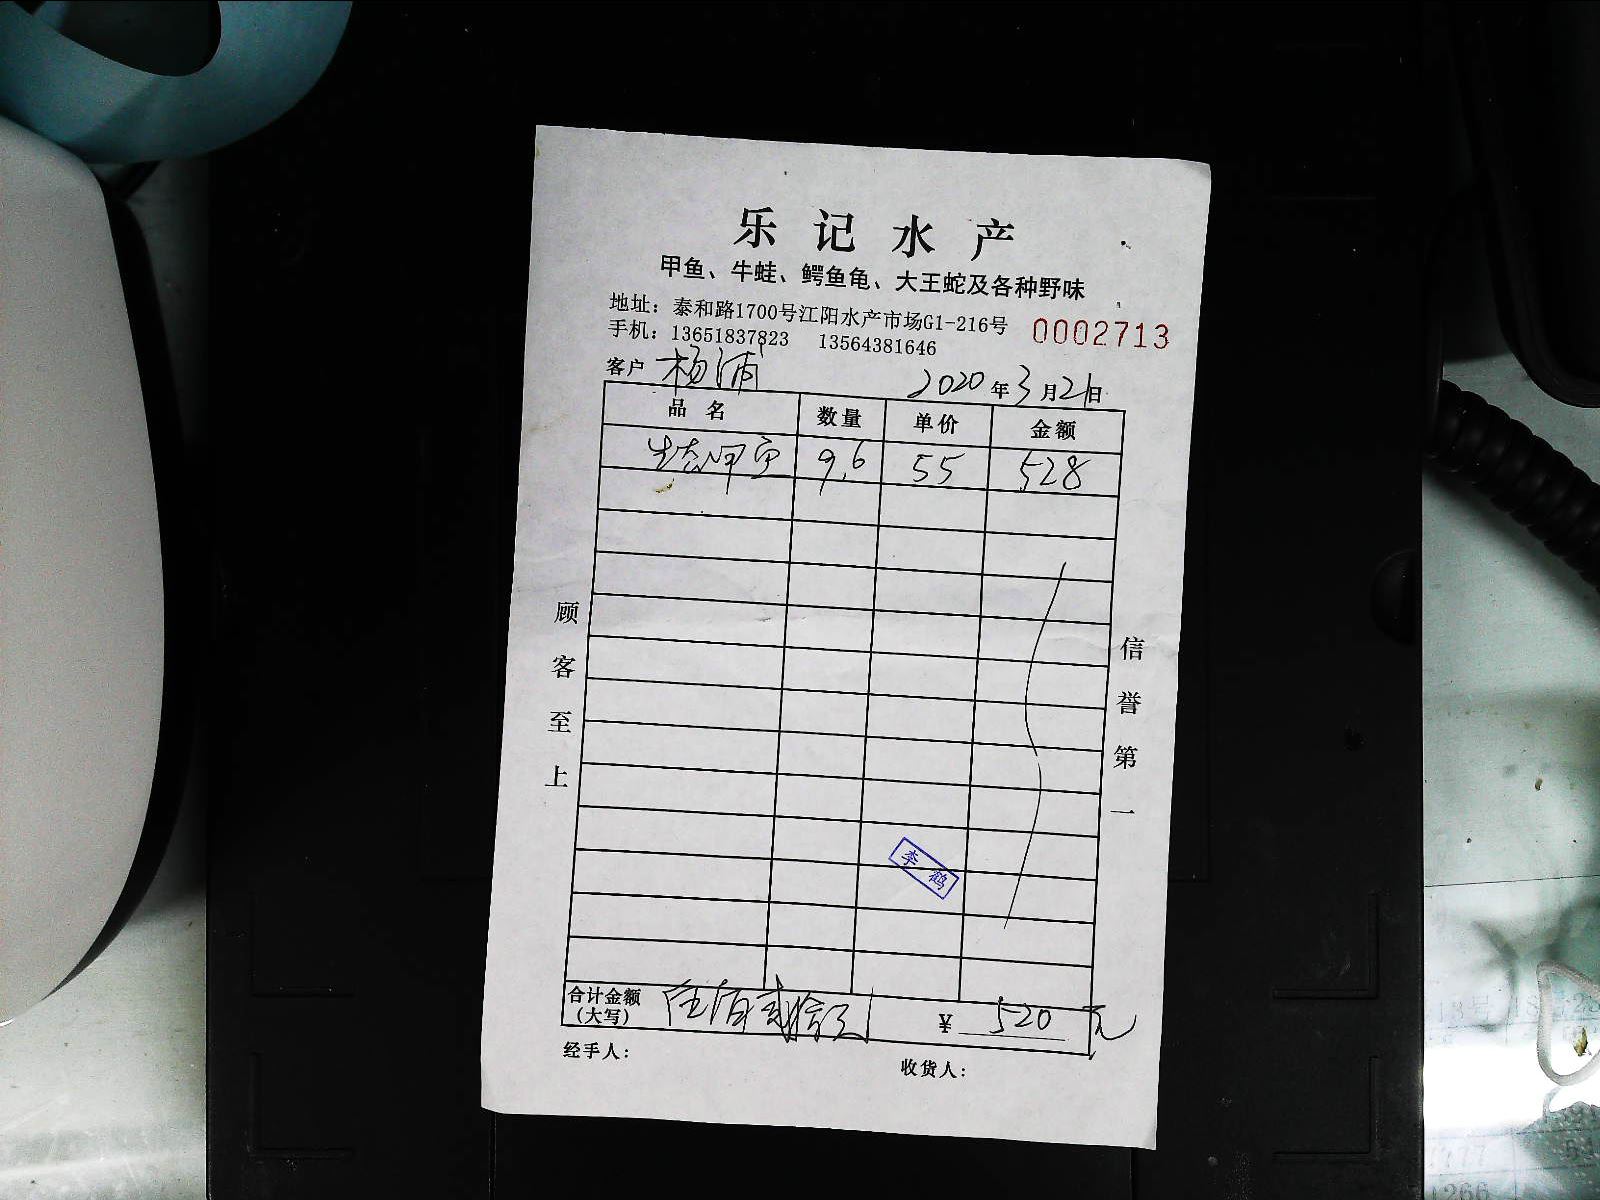 乐记水产
甲鱼、牛蛙、鳄鱼龟、大王蛇及各种野味
地址：泰和路1700号江阳水产市场G1-216号
手机：13651837823 13564381646
0002713
客户 杨浦 2020年3月21日
品名 数量 单价 金额
生态甲鱼 9.6 55 528
顾客至上
信誉第一
李鹤
合计金额（大写） 伍佰贰拾元 ¥ 520 元
经手人： 收货人：